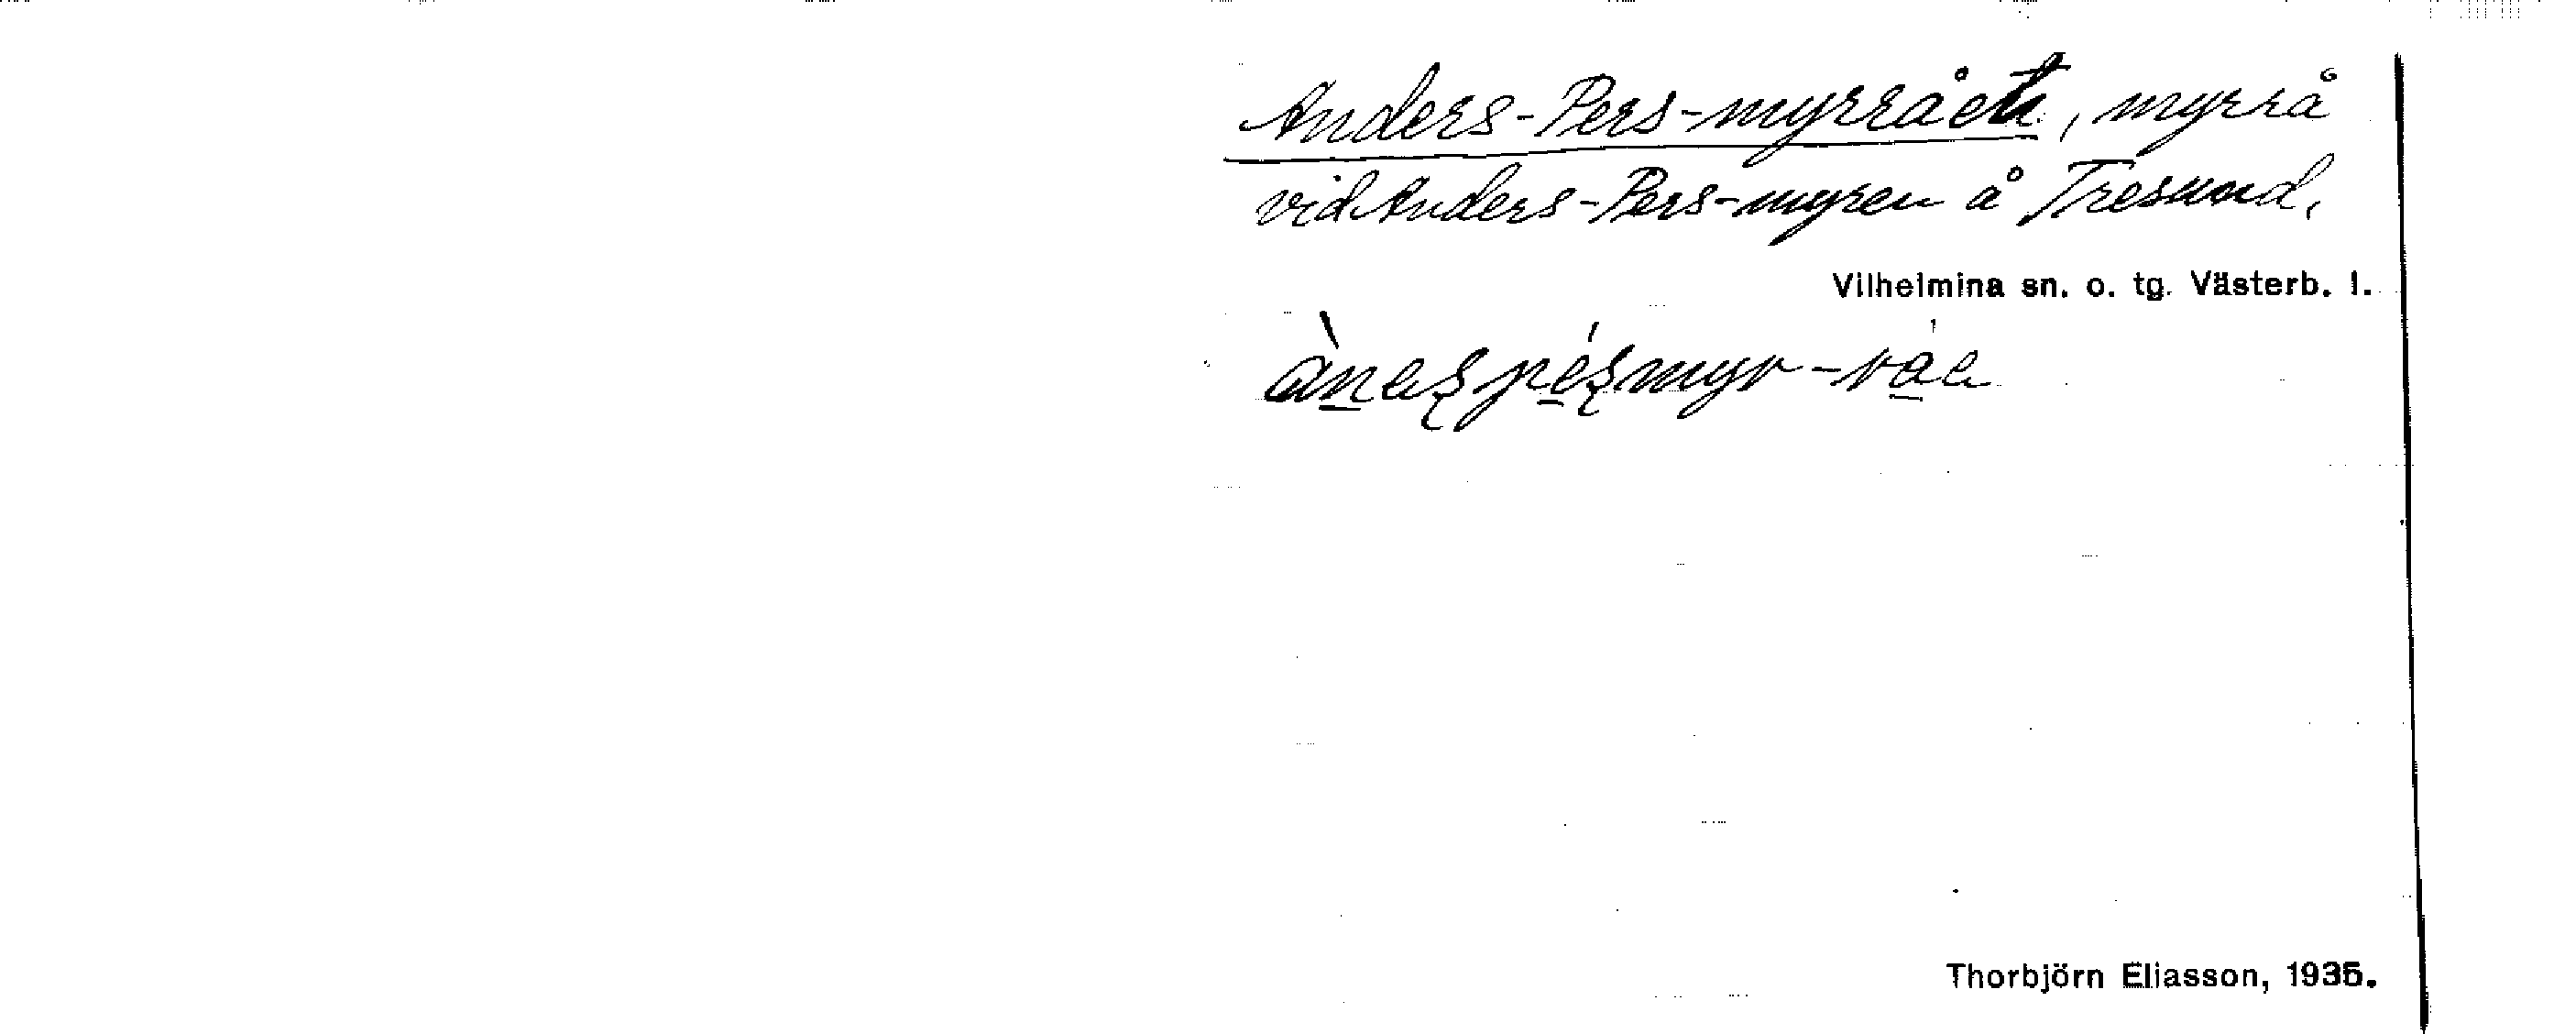 Anders-Pers-myrrået, myrrå
vid Anders-Pers-myren å Tresund,
Vilhelmina sn. o. tg. Västerb. l.
Thorbjörn Eliasson, 1935.